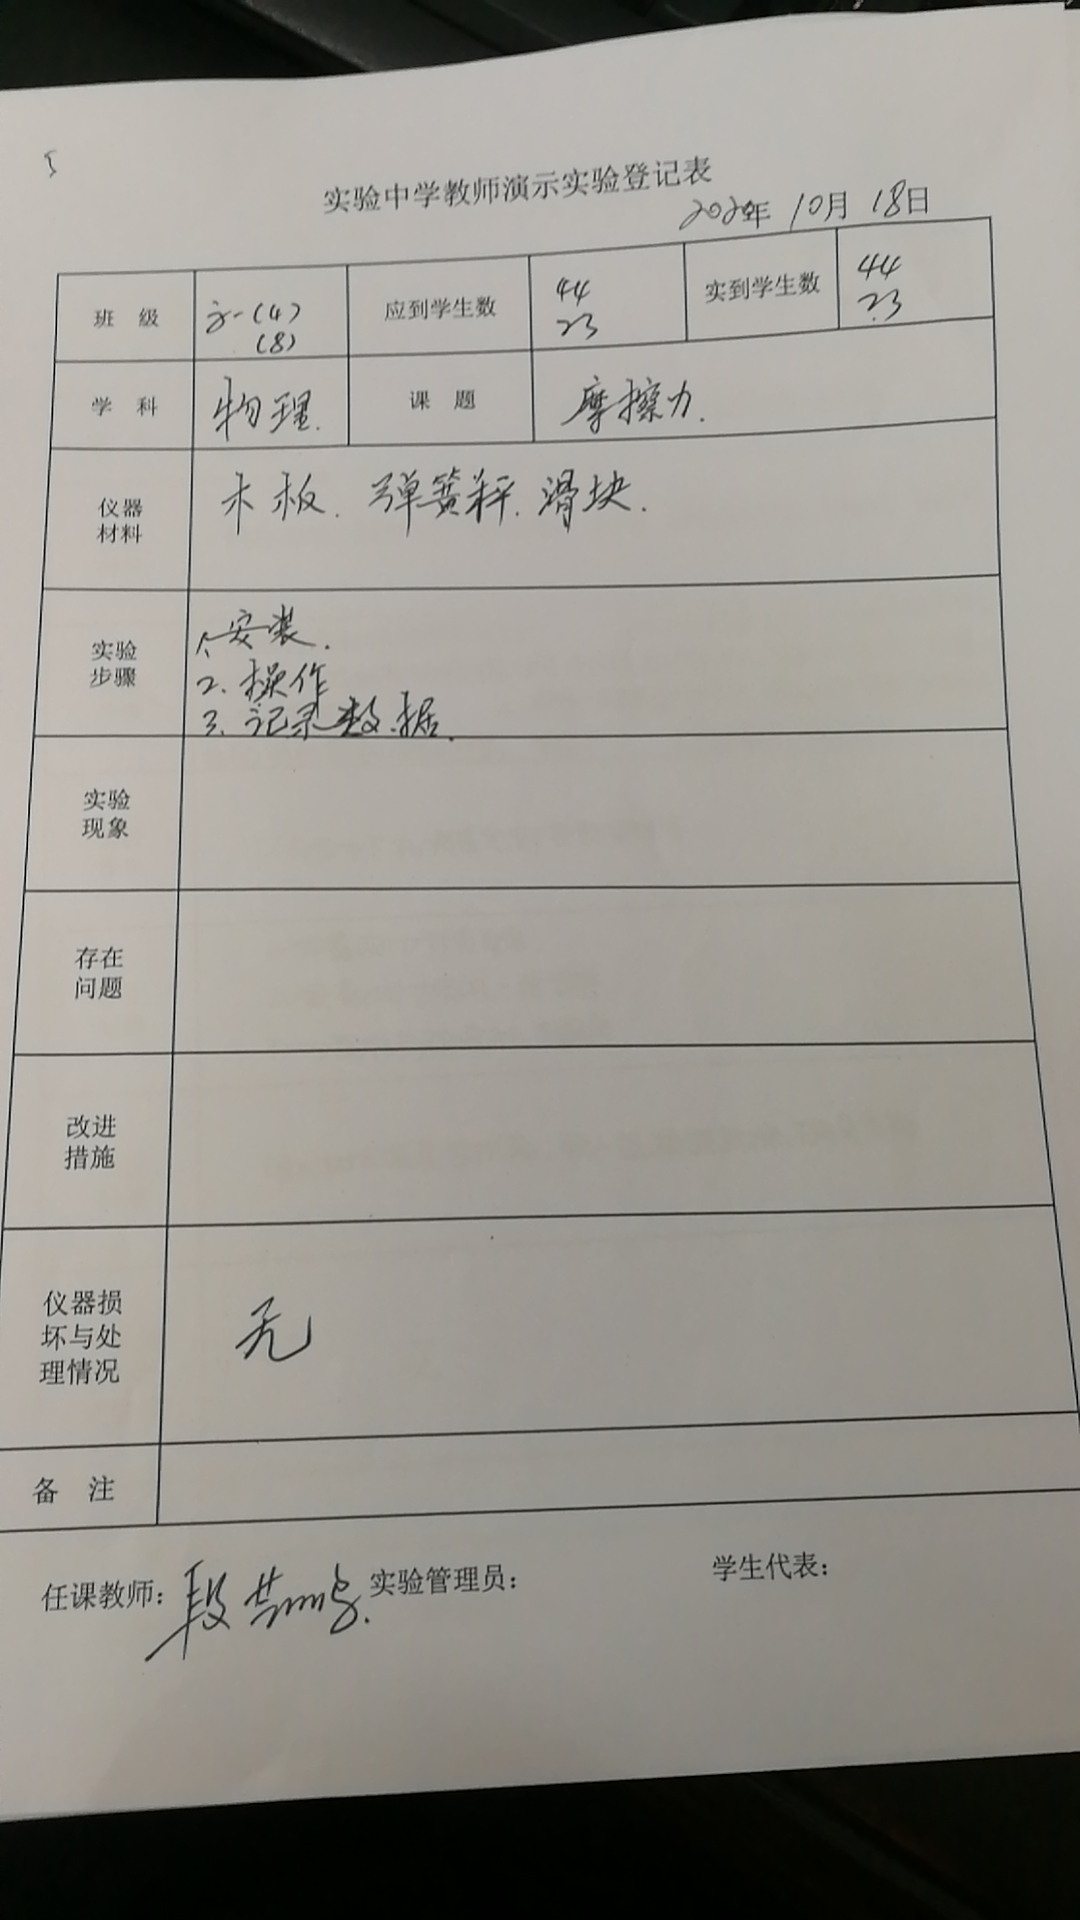 实验中学教师演示实验登记表
2020年 10月 18日
班 级 (4) 应到学生数 44 实到学生数 44
(8) 23 23
学 科 物理. 课 题 摩擦力.
仪器材料 木板. 弹簧秤. 滑块.
实验步骤 1.安装.
2. 操作
3. 记录数据.
实验
现象
存在
问题
改进
措施
仪器损
坏与处 无
理情况
备 注
任课教师: 段 实验管理员: 学生代表: